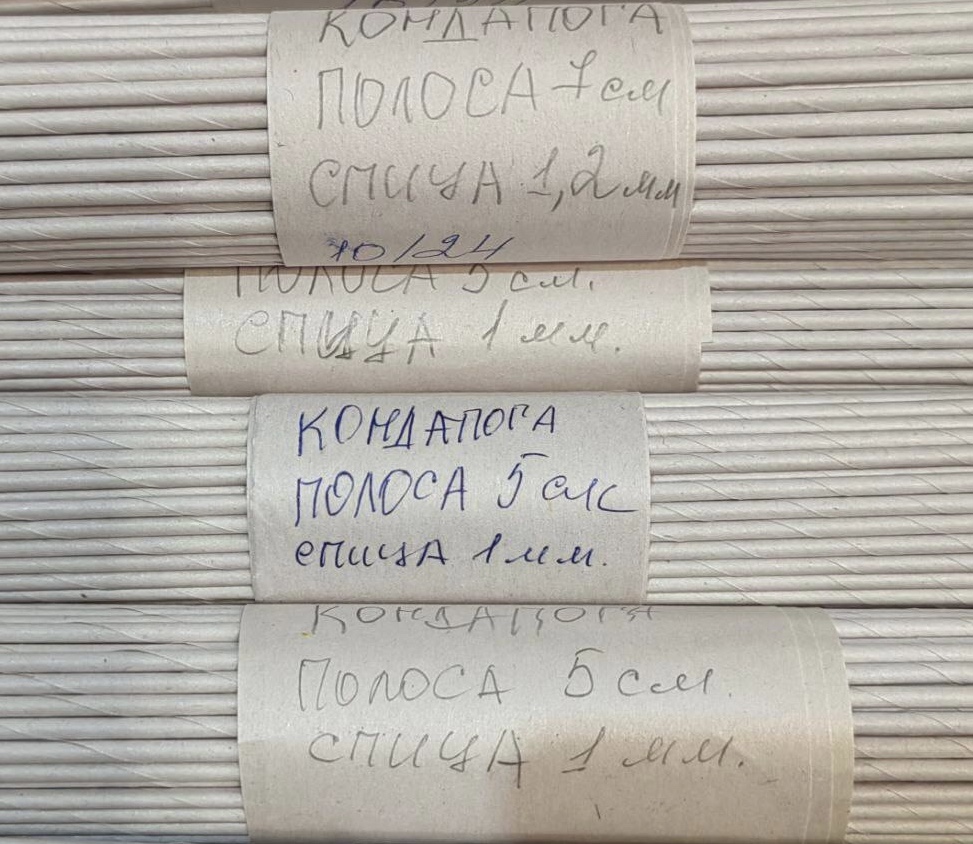 КОНДАПОГА
ПОЛОСА 7 см
СПИЦА 1,2 мм
10/24
ПОЛОСА 5 см.
СПИЦА 1 мм.
КОНДАПОГА
ПОЛОСА 5 см
СПИЦА 1 мм.
КОНДАПОГА
ПОЛОСА 5 см.
СПИЦА 1 мм.